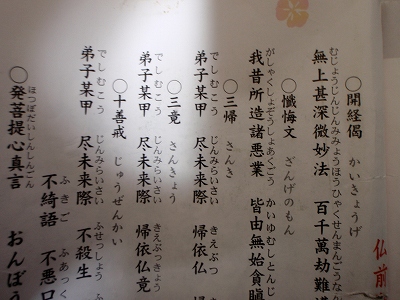 仏前
〇開経偈 かいきょうげ
むじょうじんじんみみょうほう ひゃくせんまんごうな
無上甚深微妙法 百千萬劫難
〇懺悔文 ざんげのもん
がしゃくしょぞうしょあくごう かいゆむしとんじ
我昔所造諸悪業 皆由無始貪瞋
〇三帰 さんき
でしむこう じんみらいさい きえぶつ
弟子某甲 尽未来際 帰依仏
〇三竟 さんきょう
でしむこう じんみらいさい きえぶっきょう
弟子某甲 尽未来際 帰依仏竟
〇十善戒 じゅうぜんかい
でしむこう じんみらいさい ふせっしょう
弟子某甲 尽未来際 不殺生
ふきご ふあっく
不綺語 不悪口
ほつぼだいしんしんごん
〇発菩提心真言 おんぼう